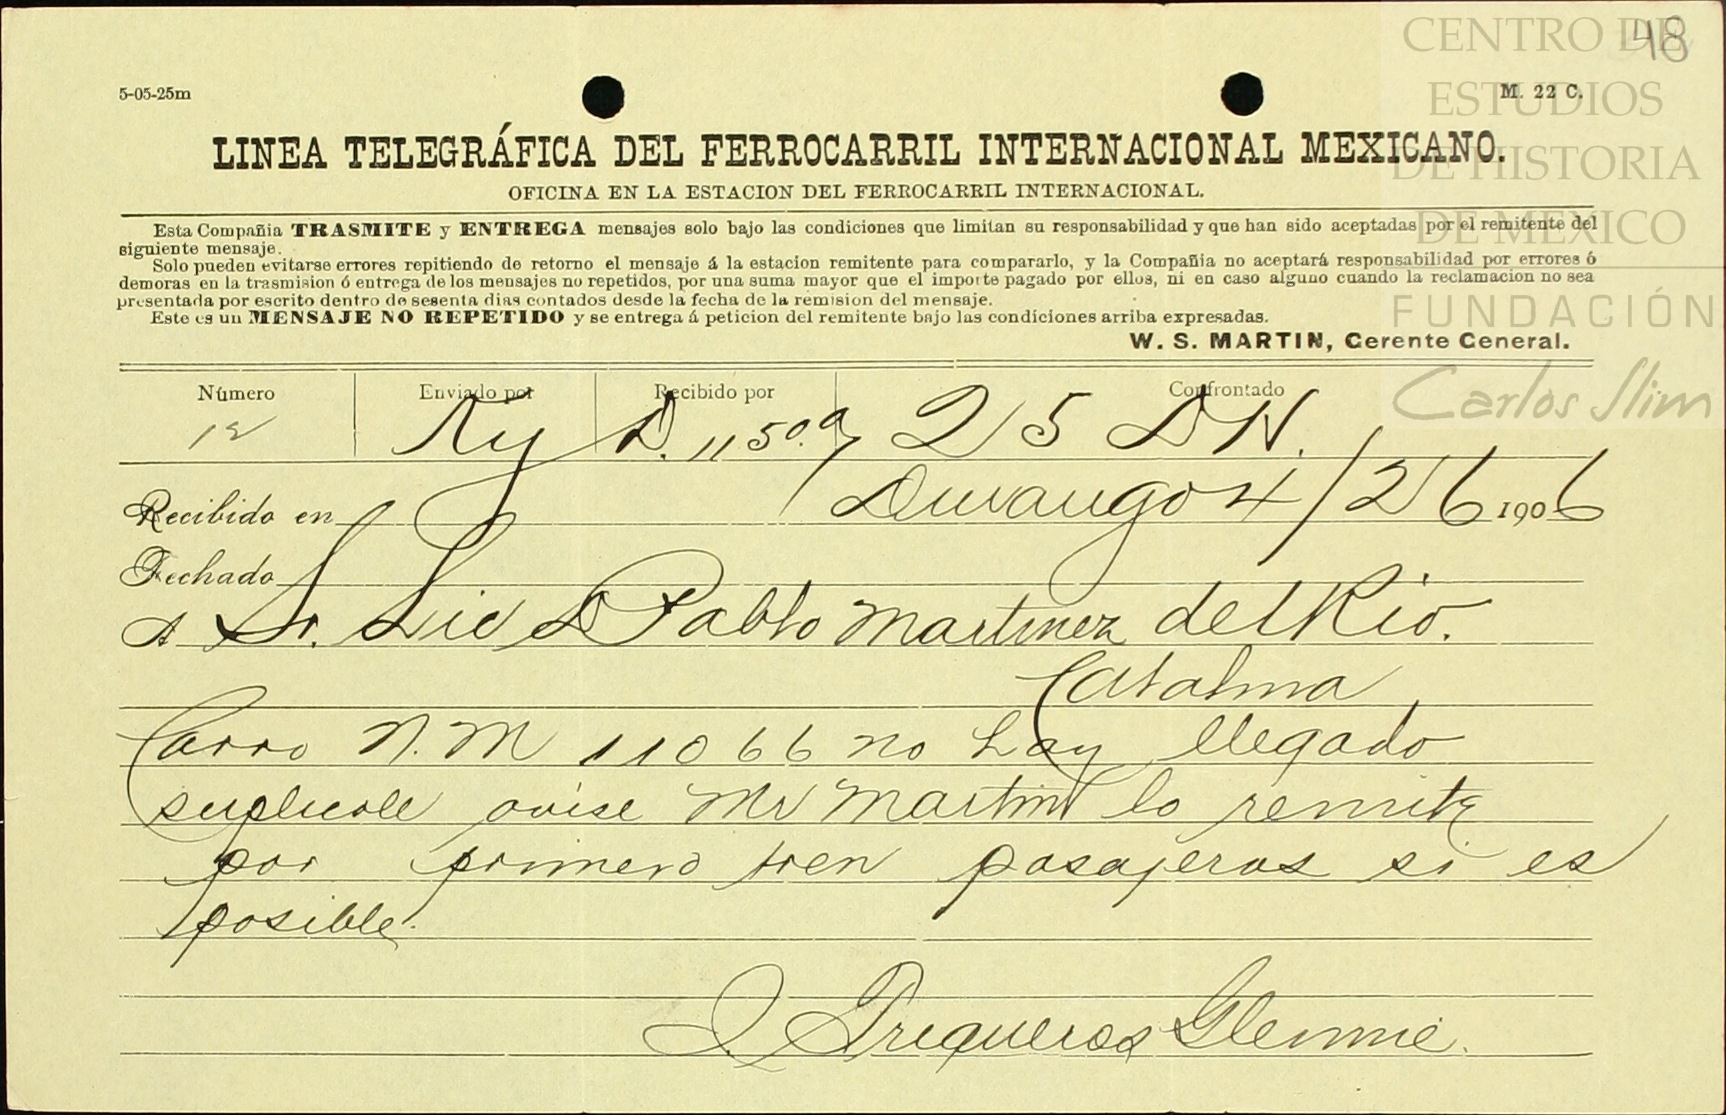 48
CENTRO DE
ESTUDIOS
DE HISTORIA
DE MÉXICO
FUNDACIÓN
Carlos Slim
5-05-25m
M. 22 C.
LINEA TELEGRÁFICA DEL FERROCARRIL INTERNACIONAL MEXICANO.
OFICINA EN LA ESTACION DEL FERROCARRIL INTERNACIONAL.
Esta Compañia TRASMITE y ENTREGA mensajes solo bajo las condiciones que limitan su responsabilidad y que han sido aceptadas por el remitente del
siguiente mensaje.
Solo pueden evitarse errores repitiendo de retorno el mensaje á la estacion remitente para compararlo, y la Compañia no aceptará responsabilidad por errores ó
demoras en la trasmision ó entrega de los mensajes no repetidos, por una suma mayor que el importe pagado por ellos, ni en caso alguno cuando la reclamacion no sea
presentada por escrito dentro de sesenta dias contados desde la fecha de la remision del mensaje.
Este es un MENSAJE NO REPETIDO y se entrega á peticion del remitente bajo las condiciones arriba expresadas.
W. S. MARTIN, Gerente General.
Número Enviado por Recibido por Confrontado
12 Ny D. 1150.a 25 DH.
Recibido en Durango 4/26 1906
Fechado
A Sr. Lic D Pablo Martinez del Rio.
Catalina
Carro N.M 11066 no hay llegado
suplicole avise Mr Martin lo remite
por primero tren pasajeros si es
posible.
J. Trigueros Glennie.